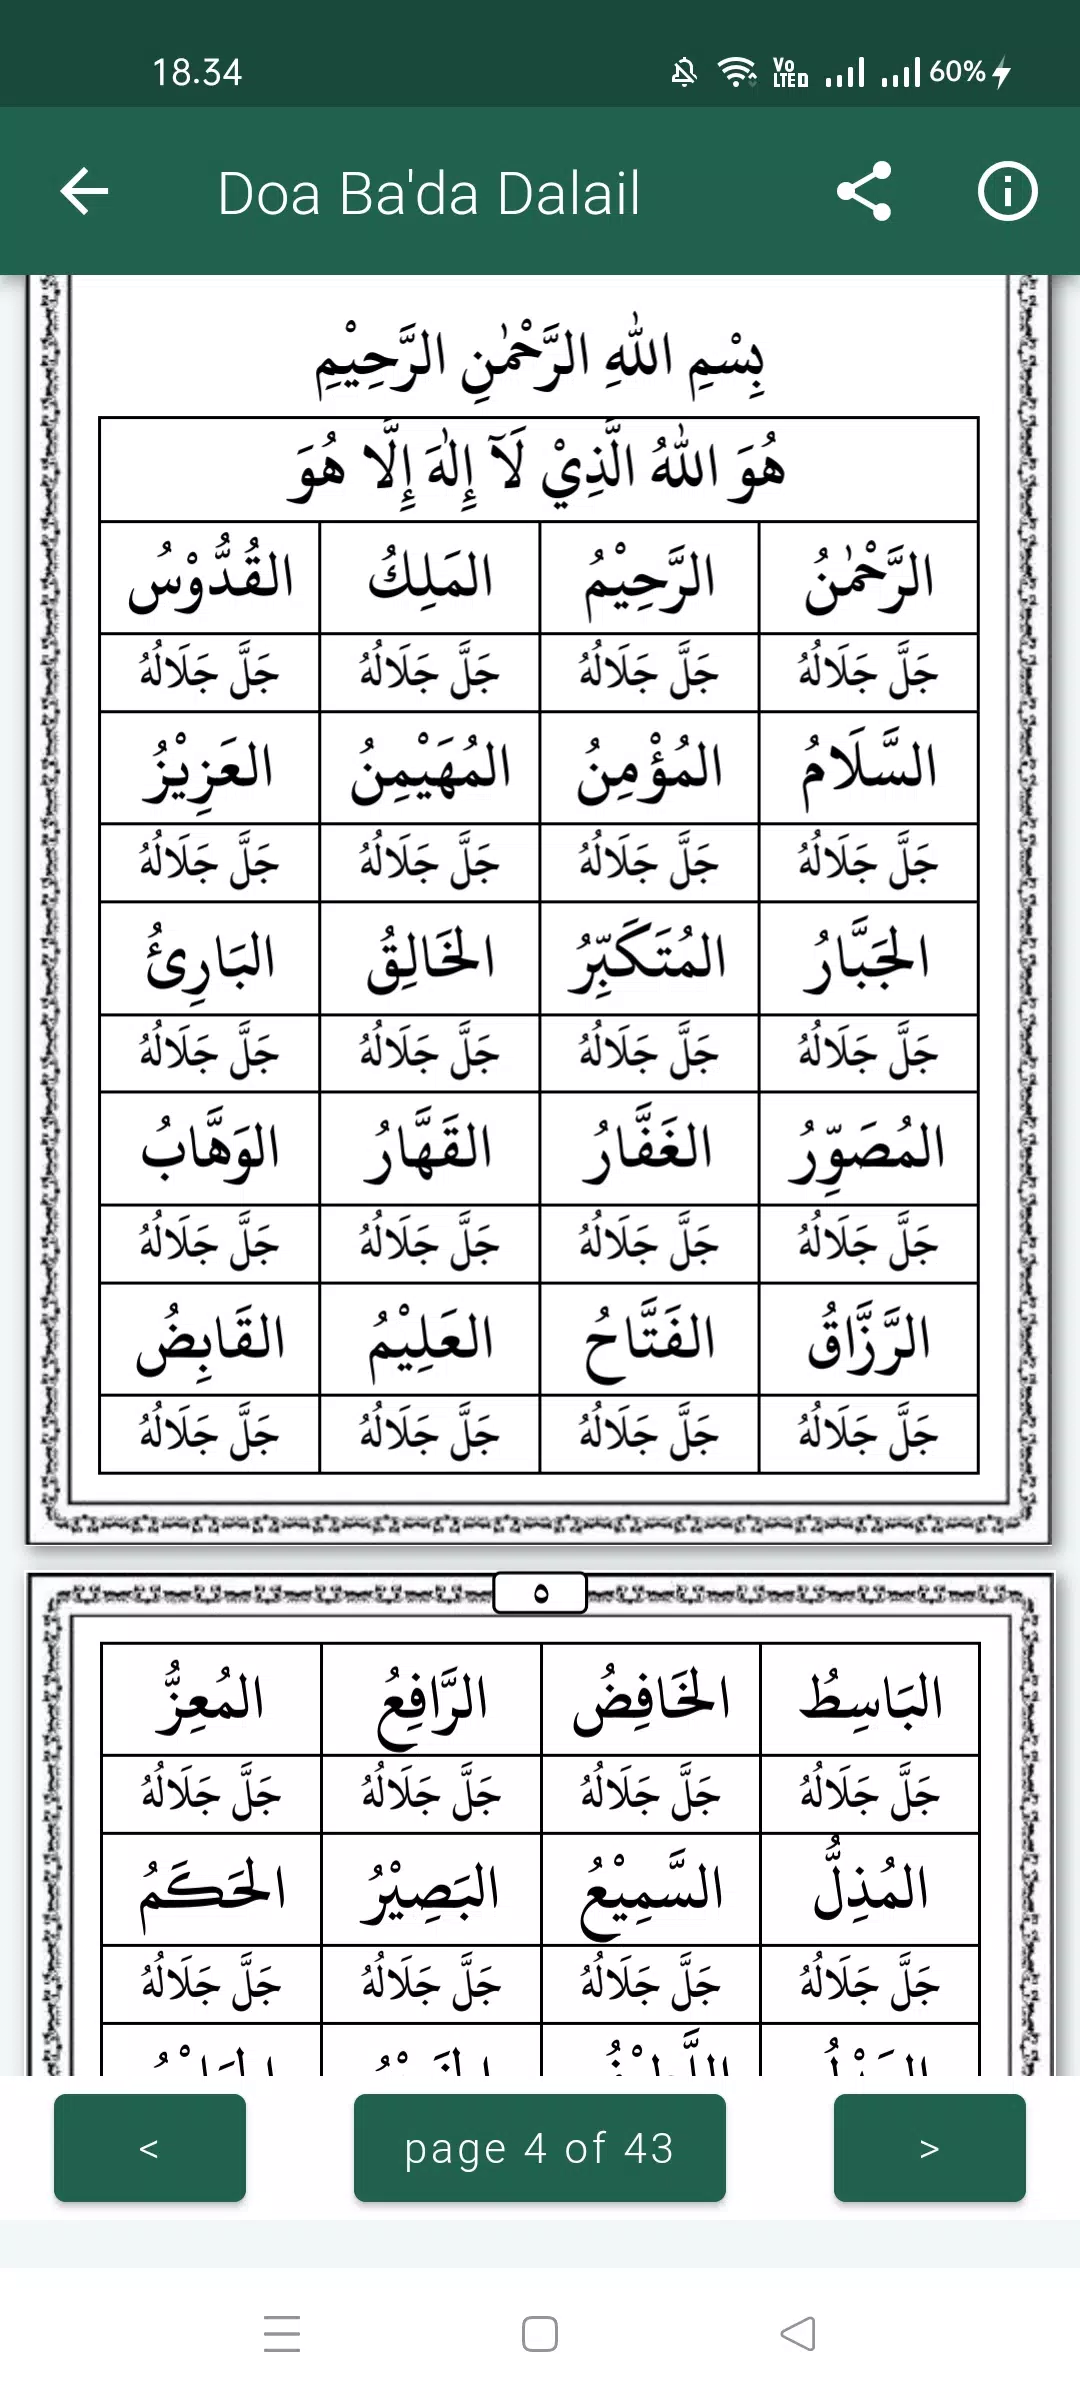 18.34 Vo LTED 60%
Doa Ba'da Dalail
بِسْمِ اللهِ الرَّحْمٰنِ الرَّحِيْمِ
هُوَ اللهُ الَّذِيْ لَآ إِلٰهَ إِلَّا هُوَ
الرَّحْمٰنُ الرَّحِيْمُ المَلِكُ القُدُّوْسُ
جَلَّ جَلَالُهُ جَلَّ جَلَالُهُ جَلَّ جَلَالُهُ جَلَّ جَلَالُهُ
السَّلَامُ المُؤْمِنُ المُهَيْمِنُ العَزِيْزُ
جَلَّ جَلَالُهُ جَلَّ جَلَالُهُ جَلَّ جَلَالُهُ جَلَّ جَلَالُهُ
الجَبَّارُ المُتَكَبِّرُ الخَالِقُ البَارِئُ
جَلَّ جَلَالُهُ جَلَّ جَلَالُهُ جَلَّ جَلَالُهُ جَلَّ جَلَالُهُ
المُصَوِّرُ الغَفَّارُ القَهَّارُ الوَهَّابُ
جَلَّ جَلَالُهُ جَلَّ جَلَالُهُ جَلَّ جَلَالُهُ جَلَّ جَلَالُهُ
الرَّزَّاقُ الفَتَّاحُ العَلِيْمُ القَابِضُ
جَلَّ جَلَالُهُ جَلَّ جَلَالُهُ جَلَّ جَلَالُهُ جَلَّ جَلَالُهُ
٥
البَاسِطُ الخَافِضُ الرَّافِعُ المُعِزُّ
جَلَّ جَلَالُهُ جَلَّ جَلَالُهُ جَلَّ جَلَالُهُ جَلَّ جَلَالُهُ
المُذِلُّ السَّمِيْعُ البَصِيْرُ الحَكَمُ
جَلَّ جَلَالُهُ جَلَّ جَلَالُهُ جَلَّ جَلَالُهُ جَلَّ جَلَالُهُ
< page 4 of 43 >